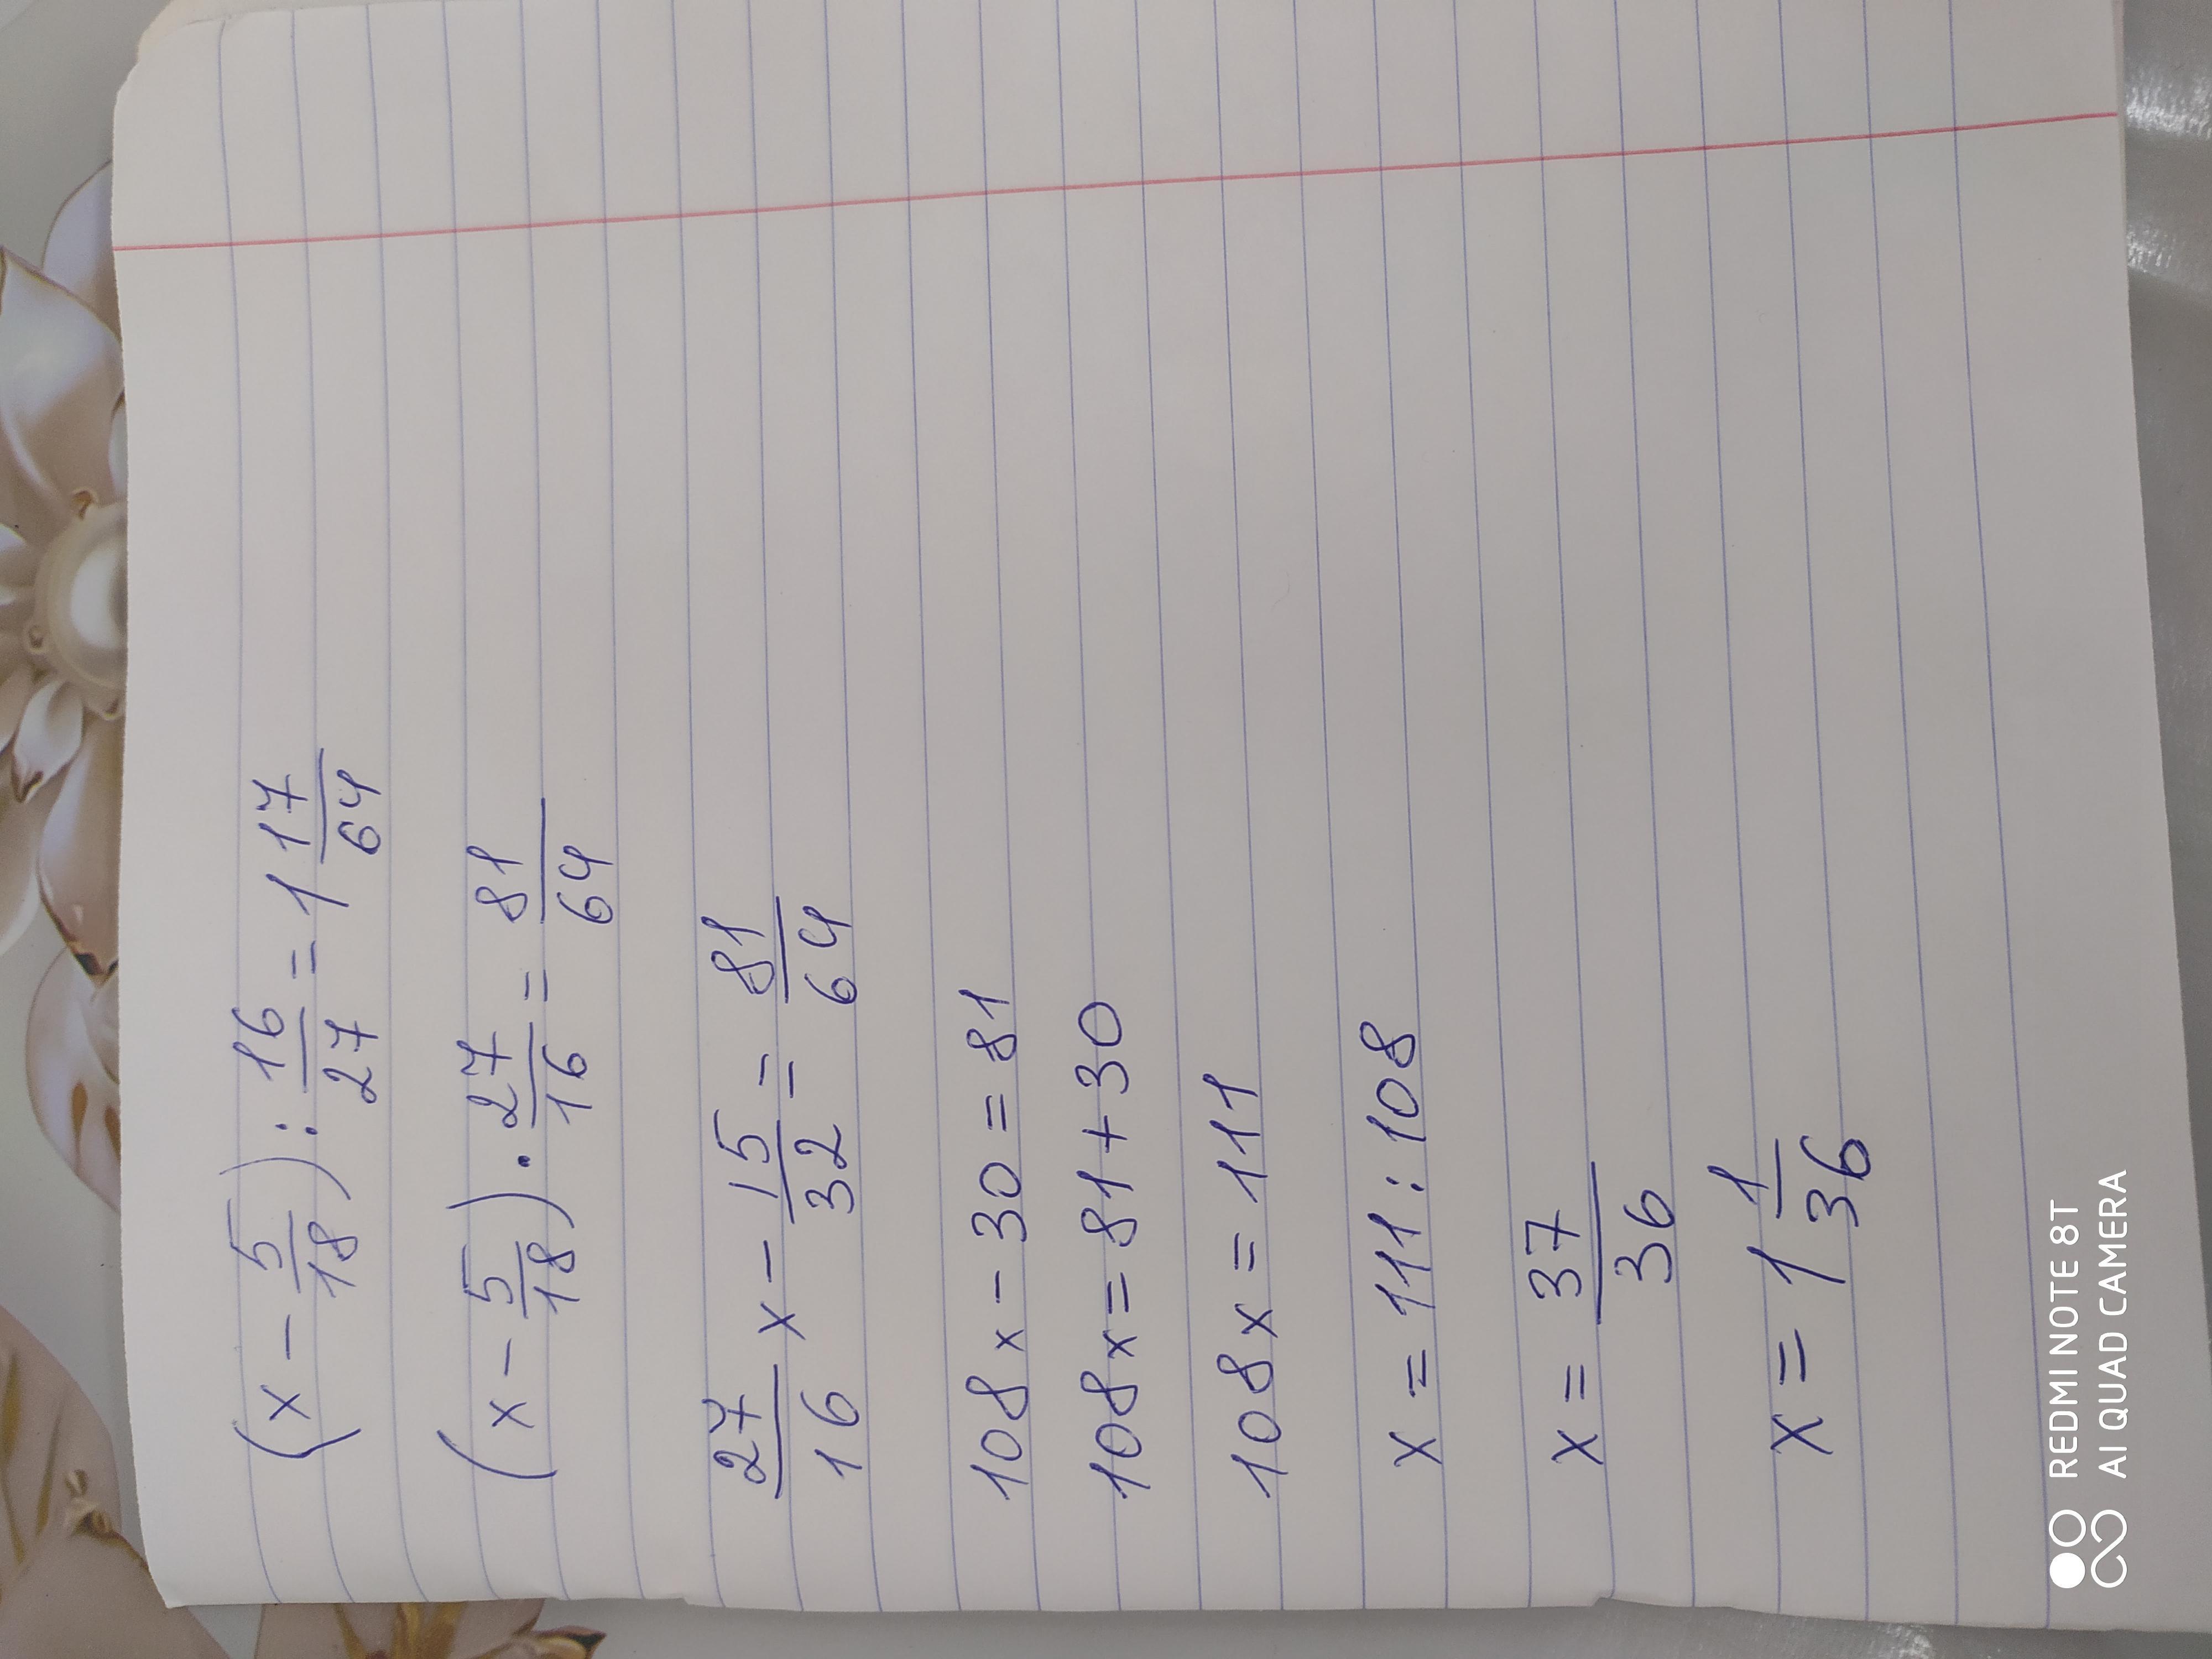 (x - 5/18) : 16/27 = 1 17/64
(x - 5/18) · 27/16 = 81/64
27/16 x - 15/32 = 81/64
108x - 30 = 81
108x = 81 + 30
108x = 111
x = 111 : 108
x = 37/36
x = 1 1/36
REDMI NOTE 8T
AI QUAD CAMERA